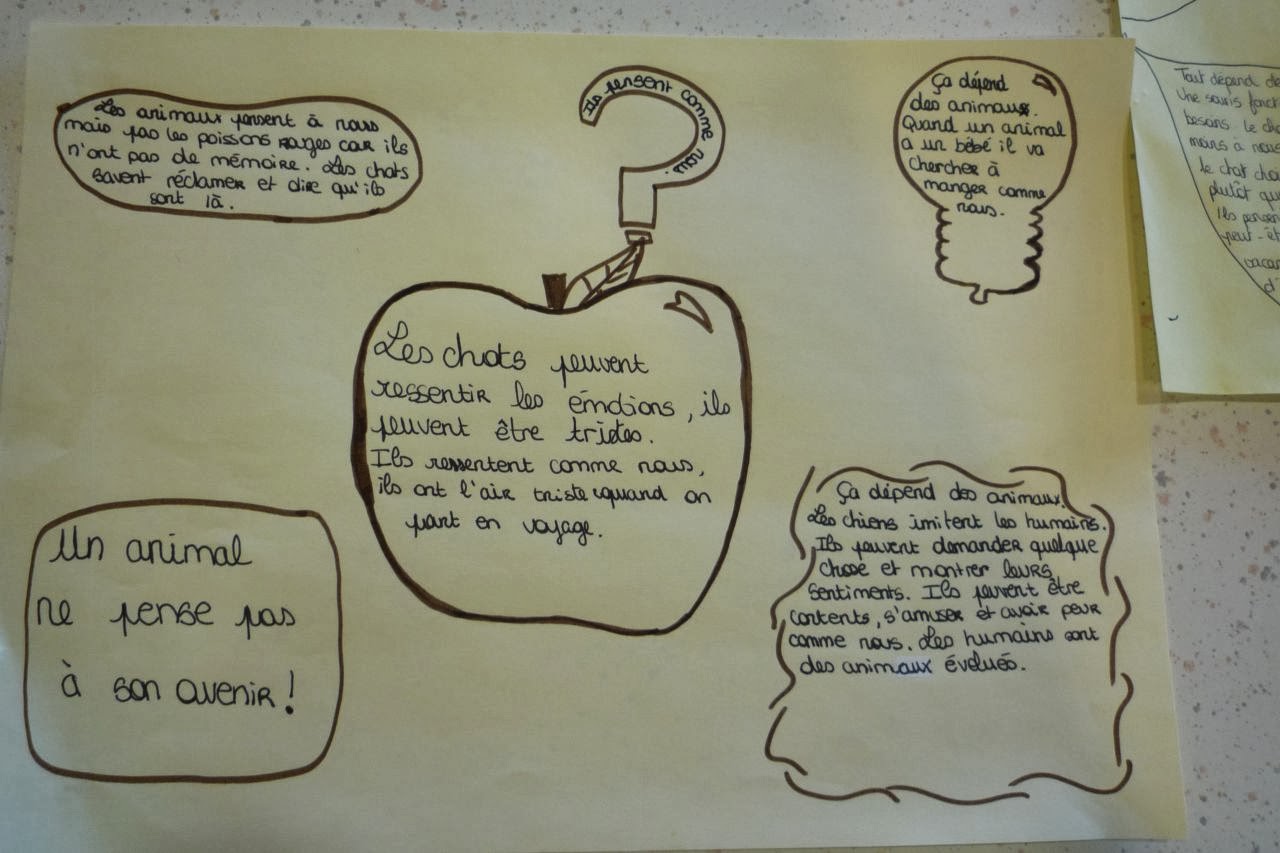 Les animaux pensent à nous
mais pas les poissons rouges car ils
n'ont pas de mémoire. Les chats
savent réclamer et dire qu'ils
sont là.
Ils pensent comme nous.
Ça dépend
des animaux.
Quand un animal
a un bébé il va
chercher à
manger comme
nous.
Les chats peuvent
ressentir les émotions, ils
peuvent être tristes.
Ils ressentent comme nous,
ils ont l'air triste quand on
part en voyage.
Un animal
ne pense pas
à son avenir !
Ça dépend des animaux.
Les chiens imitent les humains.
Ils peuvent demander quelque
chose et montrer leurs
sentiments. Ils peuvent être
contents, s'amuser et avoir peur
comme nous. Les humains sont
des animaux évolués.
Tout dépend de
Une souris
besoins. le
moins à
le chat
plutôt
Ils
peut-êt
vacan
d'